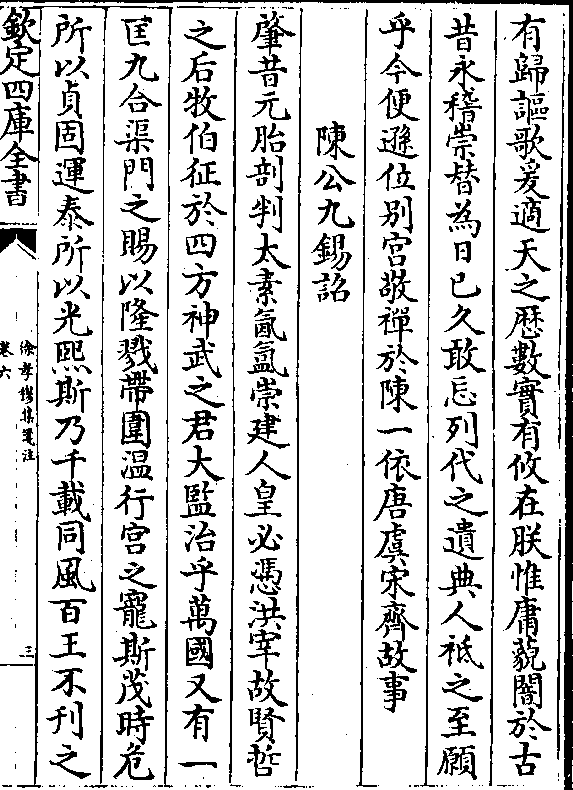 有歸謳歌爰適天之厯數實有攸在朕惟庸藐闇於古
昔永稽崇替為日已久敢忘列代之遺典人祗之至願
乎今便遜位别宫敬禪於陳一依唐虞宋齊故事
陳公九錫詔
肇昔元胎剖判太素氤氲崇建人皇必憑洪宰故賢哲
之后牧伯征於四方神武之君大監治乎萬國又有一
匡九合渠門之賜以隆戮帶圍温行宫之寵斯茂時危
所以貞固運泰所以光熙斯乃千載同風百王不刋之
欽定四庫全書
徐孝穆集箋注
卷六
三